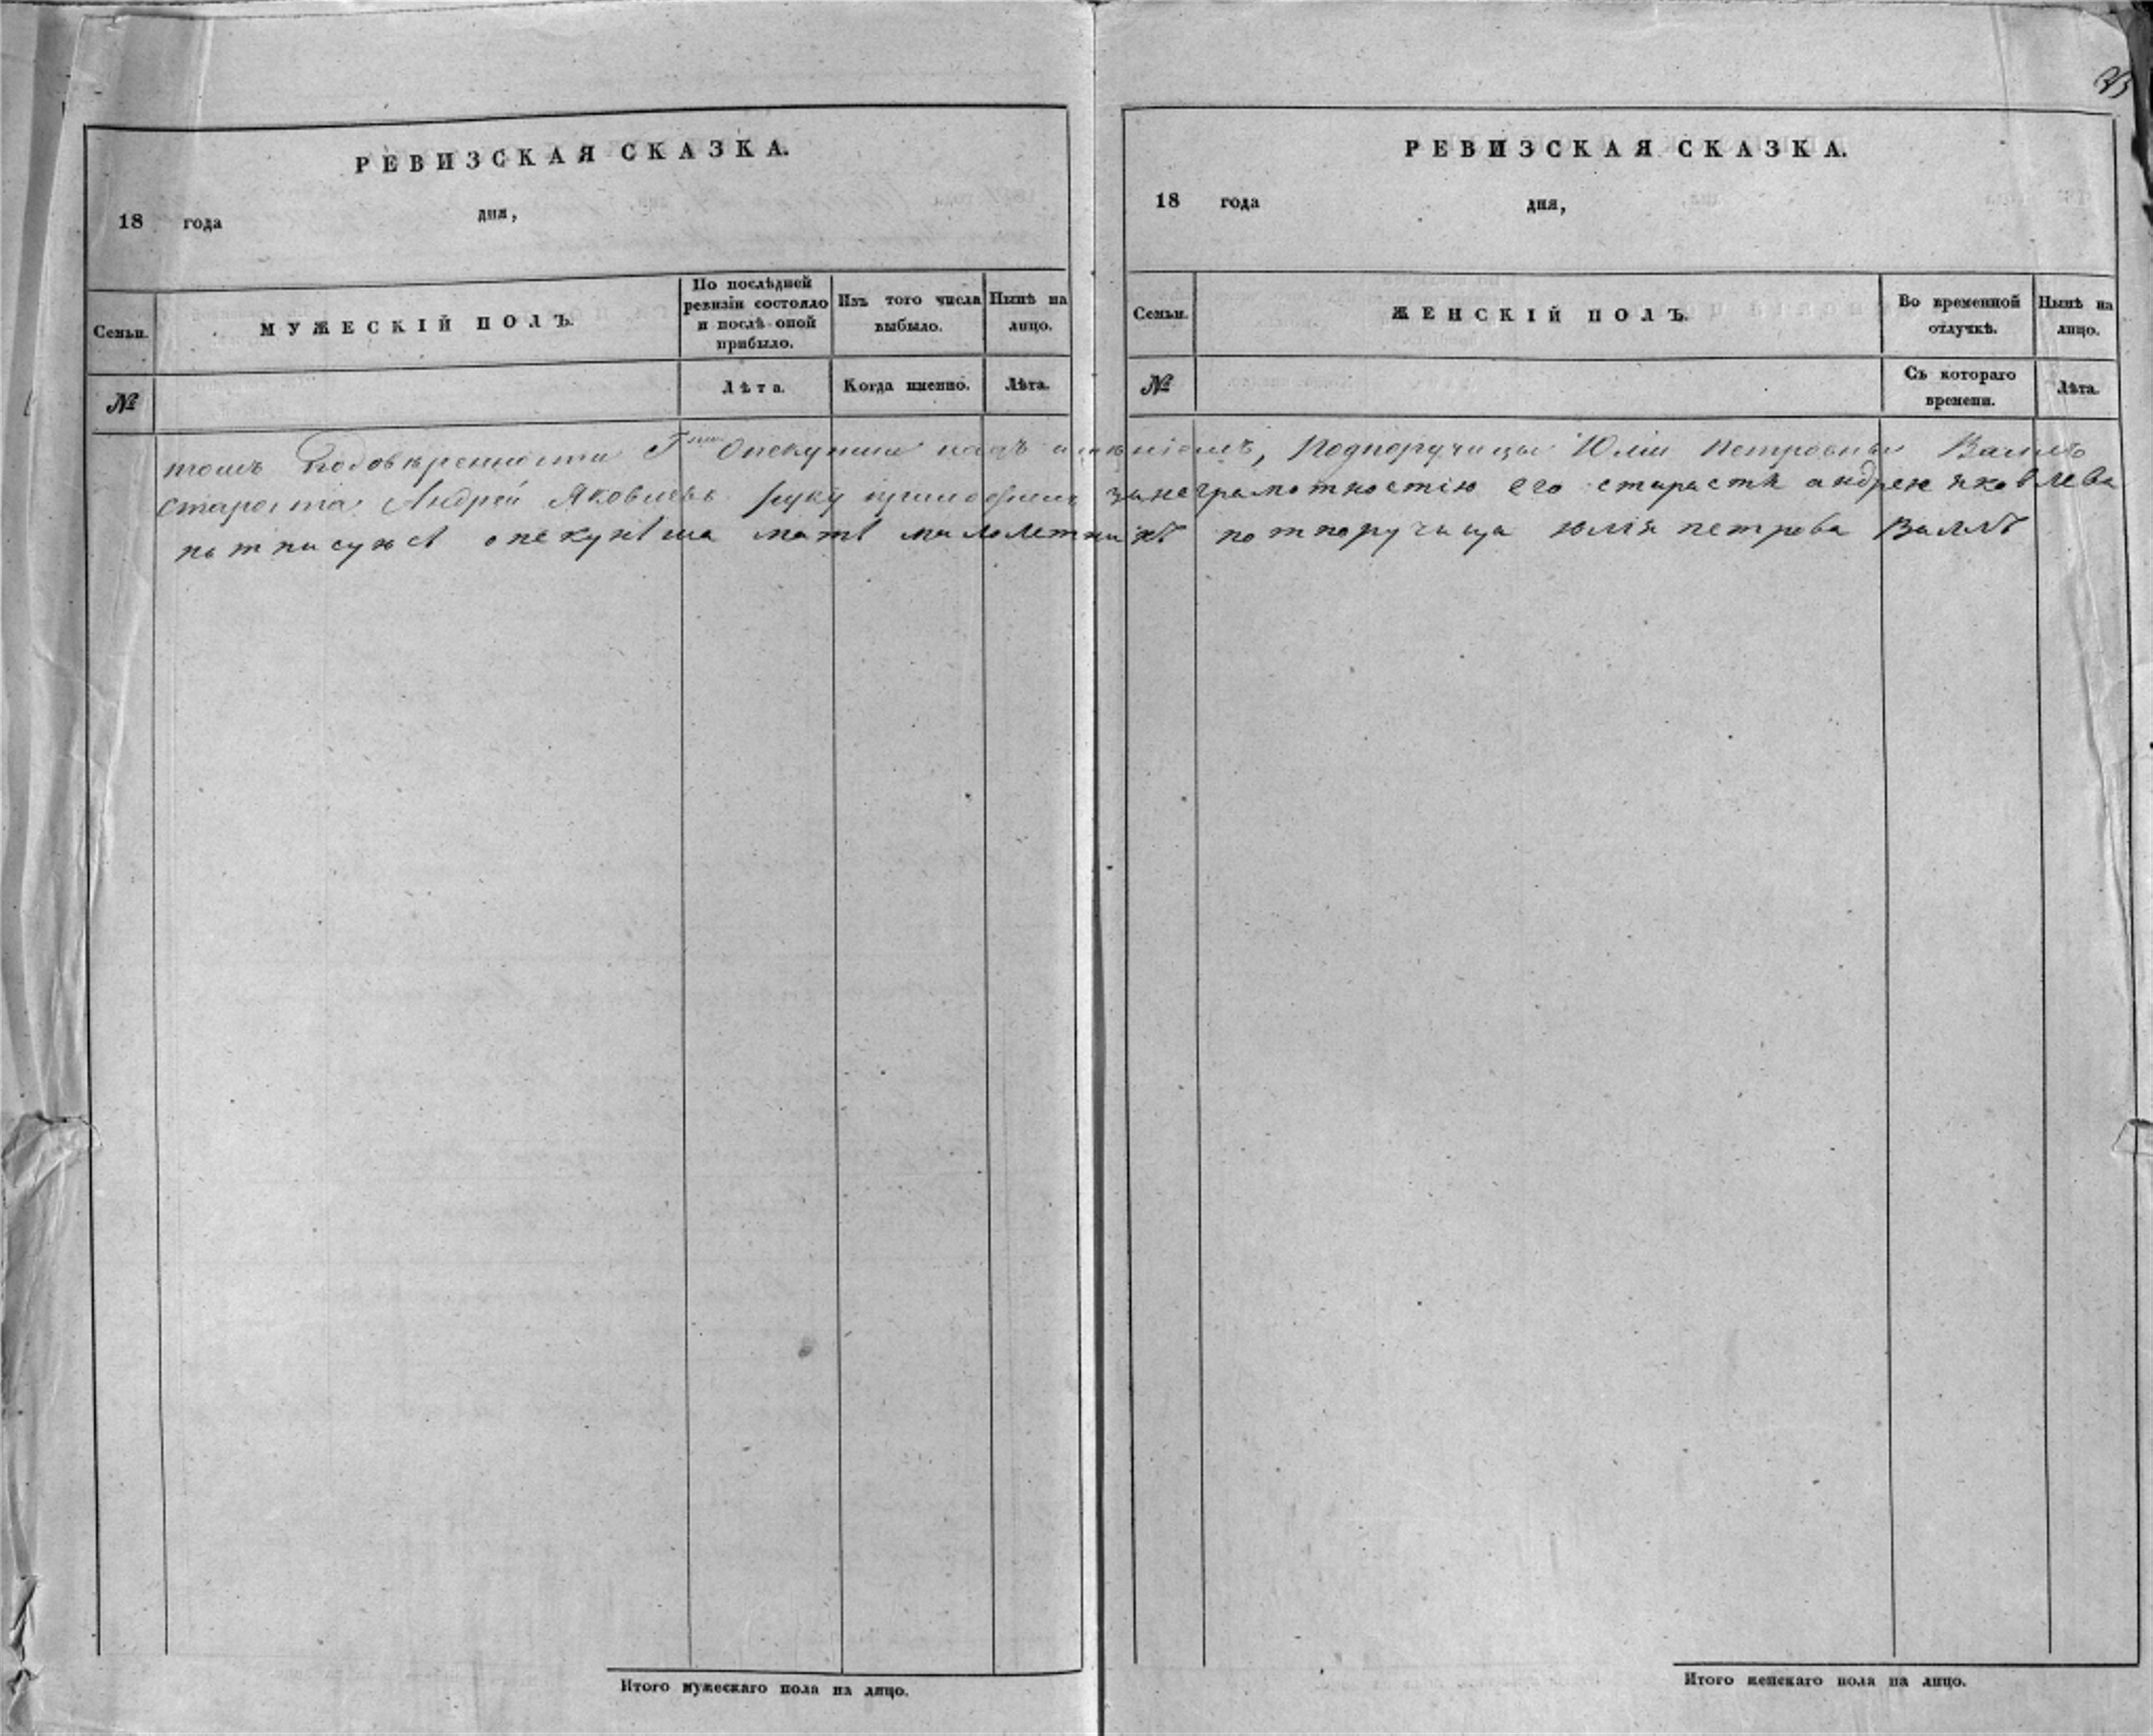 РЕВИЗСКАЯ СКАЗКА.
18 года дня,
Семьи.
МУЖЕСКІЙ ПОЛЪ.
По послѣдней ревизіи состояло и послѣ оной прибыло.
Изъ того числа выбыло.
Нынѣ на лицо.
№
Лѣта.
Когда именно.
Лѣта.
РЕВИЗСКАЯ СКАЗКА.
18 года дня,
Семьи.
ЖЕНСКІЙ ПОЛЪ.
Во временной отлучкѣ.
Нынѣ на лицо.
№
Съ котораго времени.
Лѣта.
томъ Подовѣренности Г-жи Опекунши надъ имѣніемъ, Подпоручицы Юліи Петровны Ваммъ
староста Андрей Яковлевъ руку приложилъ занеграмотностію его старастѣ андрея яковлева
потписуюсь опекунша мать малолетныхъ потпоручица юлія петрова Ваммъ
Итого мужескаго пола на лицо.
Итого женскаго пола на лицо.